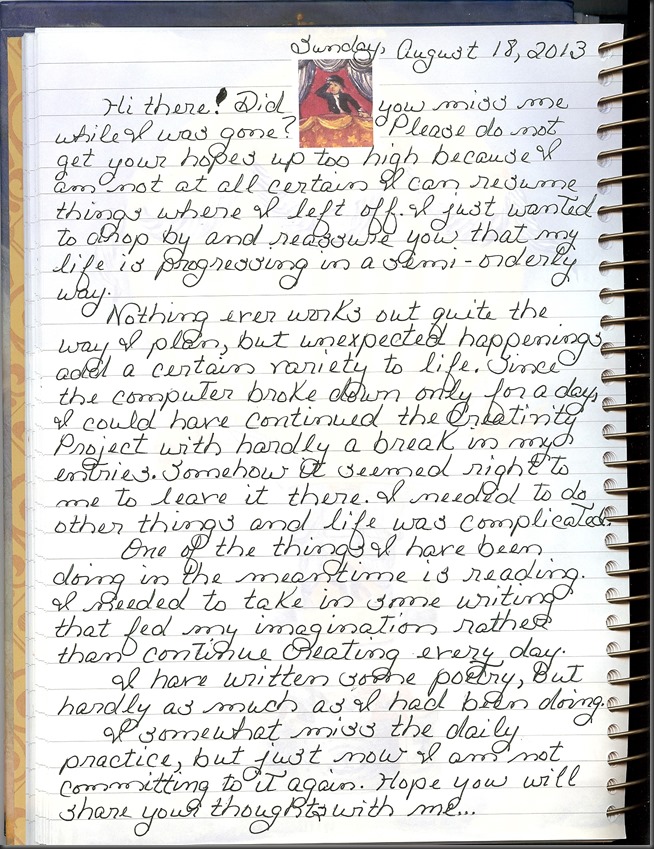 Sunday, August 18, 2013
Hi there! Did you miss me
while I was gone? Please do not
get your hopes up too high because I
am not at all certain I can resume
things where I left off. I just wanted
to drop by and reassure you that my
life is progressing in a semi-orderly
way.
Nothing ever works out quite the
way I plan, but unexpected happenings
add a certain variety to life. Since
the computer broke down only for a day,
I could have continued the Creativity
Project with hardly a break in my
entries. Somehow it seemed right to
me to leave it there. I needed to do
other things and life was complicated.
One of the things I have been
doing in the meantime is reading.
I needed to take in some writing
that fed my imagination rather
than continue creating every day.
I have written some poetry, but
hardly as much as I had been doing.
I somewhat miss the daily
practice, but just now I am not
committing to it again. Hope you will
share your thoughts with me...